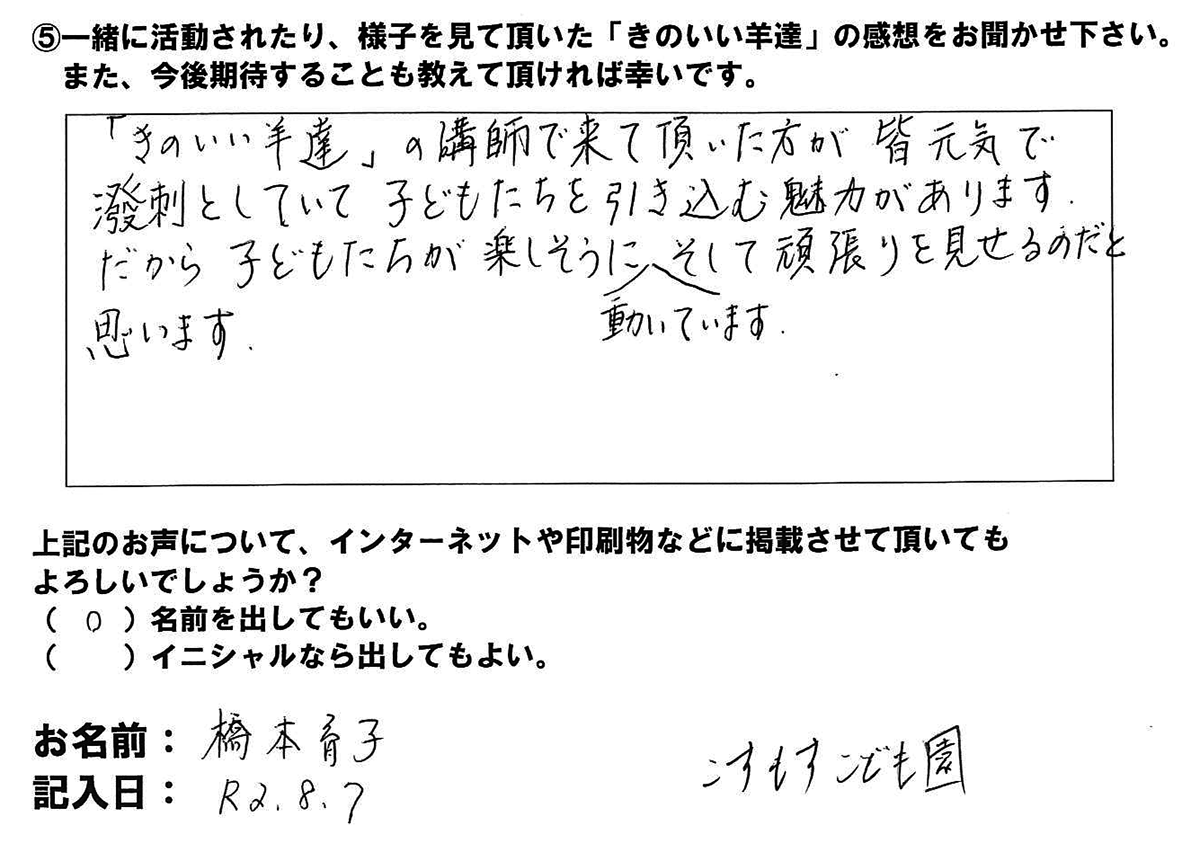 ⑤一緒に活動されたり、様子を見て頂いた「きのいい羊達」の感想をお聞かせ下さい。
また、今後期待することも教えて頂ければ幸いです。
「きのいい羊達」の講師で来て頂いた方が 皆元気で
潑刺としていて 子どもたちを引き込む魅力があります.
だから 子どもたちが 楽しそうに そして頑張りを見せるのだと
動いています.
思います.
上記のお声について、インターネットや印刷物などに掲載させて頂いても
よろしいでしょうか？
（ ０ ）名前を出してもいい。
（ ）イニシャルなら出してもよい。
お名前： 橋本育子
こすもすこども園
記入日： R2.8.7